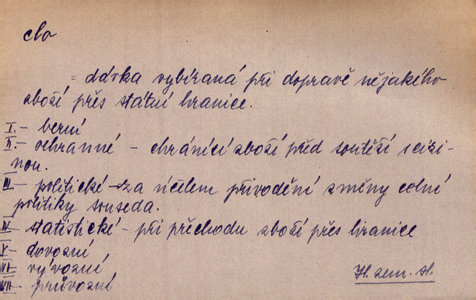 clo
= dávka vybíraná při dopravě nějakého
zboží přes státní hranice.
I - berní
II - ochranné - chránící zboží před soutěží s cizi-
nou.
III - politické → za účelem přivodění změny celní
politiky souseda.
IV - statistické - při přechodu zboží přes hranice
V - dovozní
VI - vývozní
VII - průvozní